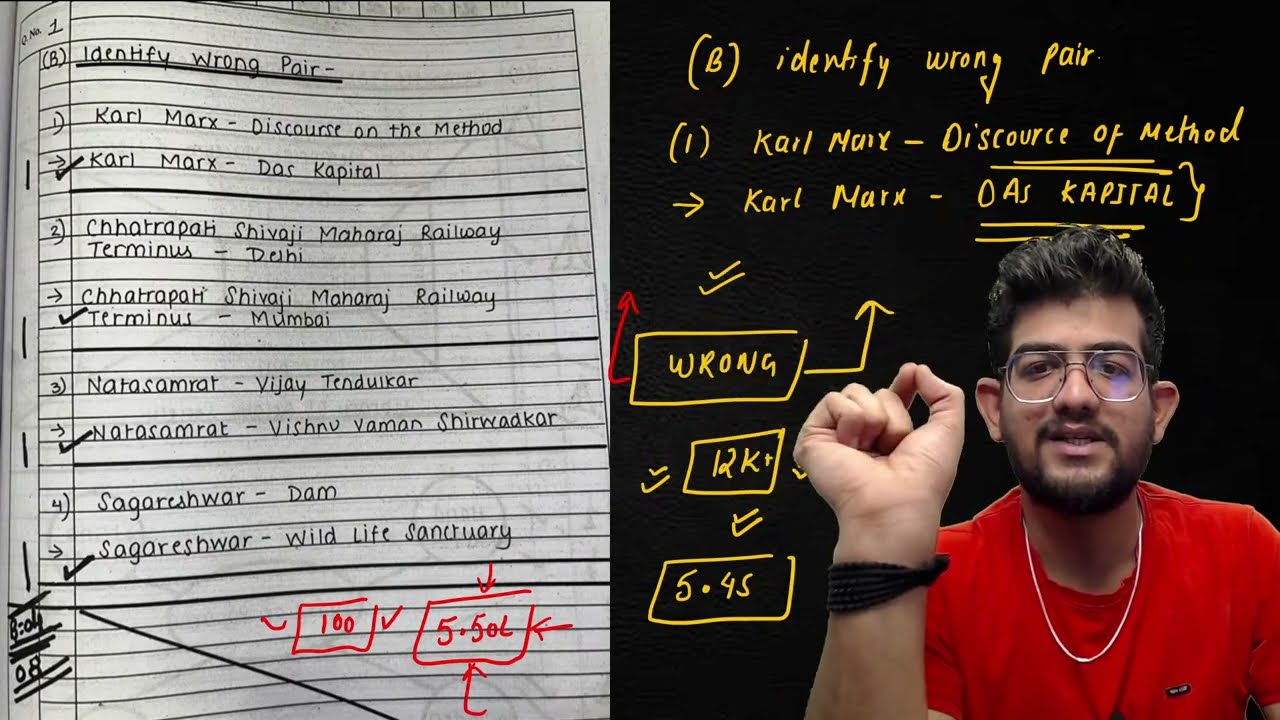 Q.No. 1
(B) Identify Wrong Pair-
1) Karl Marx - Discourse on the Method
→ Karl Marx - Das Kapital
2) Chhatrapati Shivaji Maharaj Railway
Terminus - Delhi
→ Chhatrapati Shivaji Maharaj Railway
Terminus - Mumbai
3) Natasamrat - Vijay Tendulkar
→ Natasamrat - Vishnu Vaman Shirwadkar
4) Sagareshwar - Dam
→ Sagareshwar - Wild Life Sanctuary
08
100
(B) identify wrong pair.
(1) Karl Marx - Discource of Method
→ Karl Marx - DAS KAPITAL
WRONG
12K+